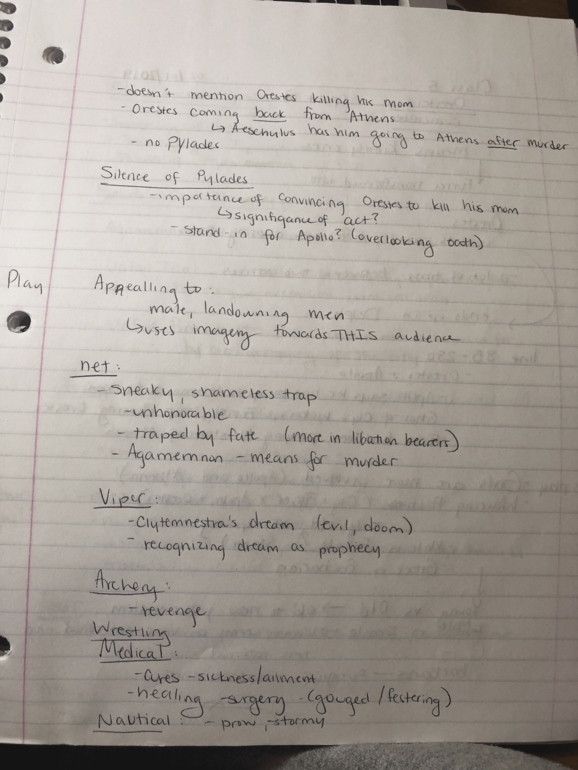 -doesn't mention Orestes killing his mom
- Orestes coming back from Athens
↳ Aeschulus has him going to Athens after murder
- no Pylades
Silence of Pylades
-importance of convincing Orestes to kill his mom
↳significance of act?
- stand-in for Apollo? (overlooking oath)
Play Appealling to:
male, landowning men
↳uses imagery towards THIS audience
net:
- sneaky, shameless trap
-unhonorable
- traped by fate (more in libation bearers)
- Agamemnon - means for murder
Viper:
-Clytemnestra's dream (evil, doom)
- recognizing dream as prophecy
Archery:
-revenge
Wrestling
Medical:
-cures -sickness/ailment
-healing -surgery -(gouged/festering)
Nautical: - prow, -stormy